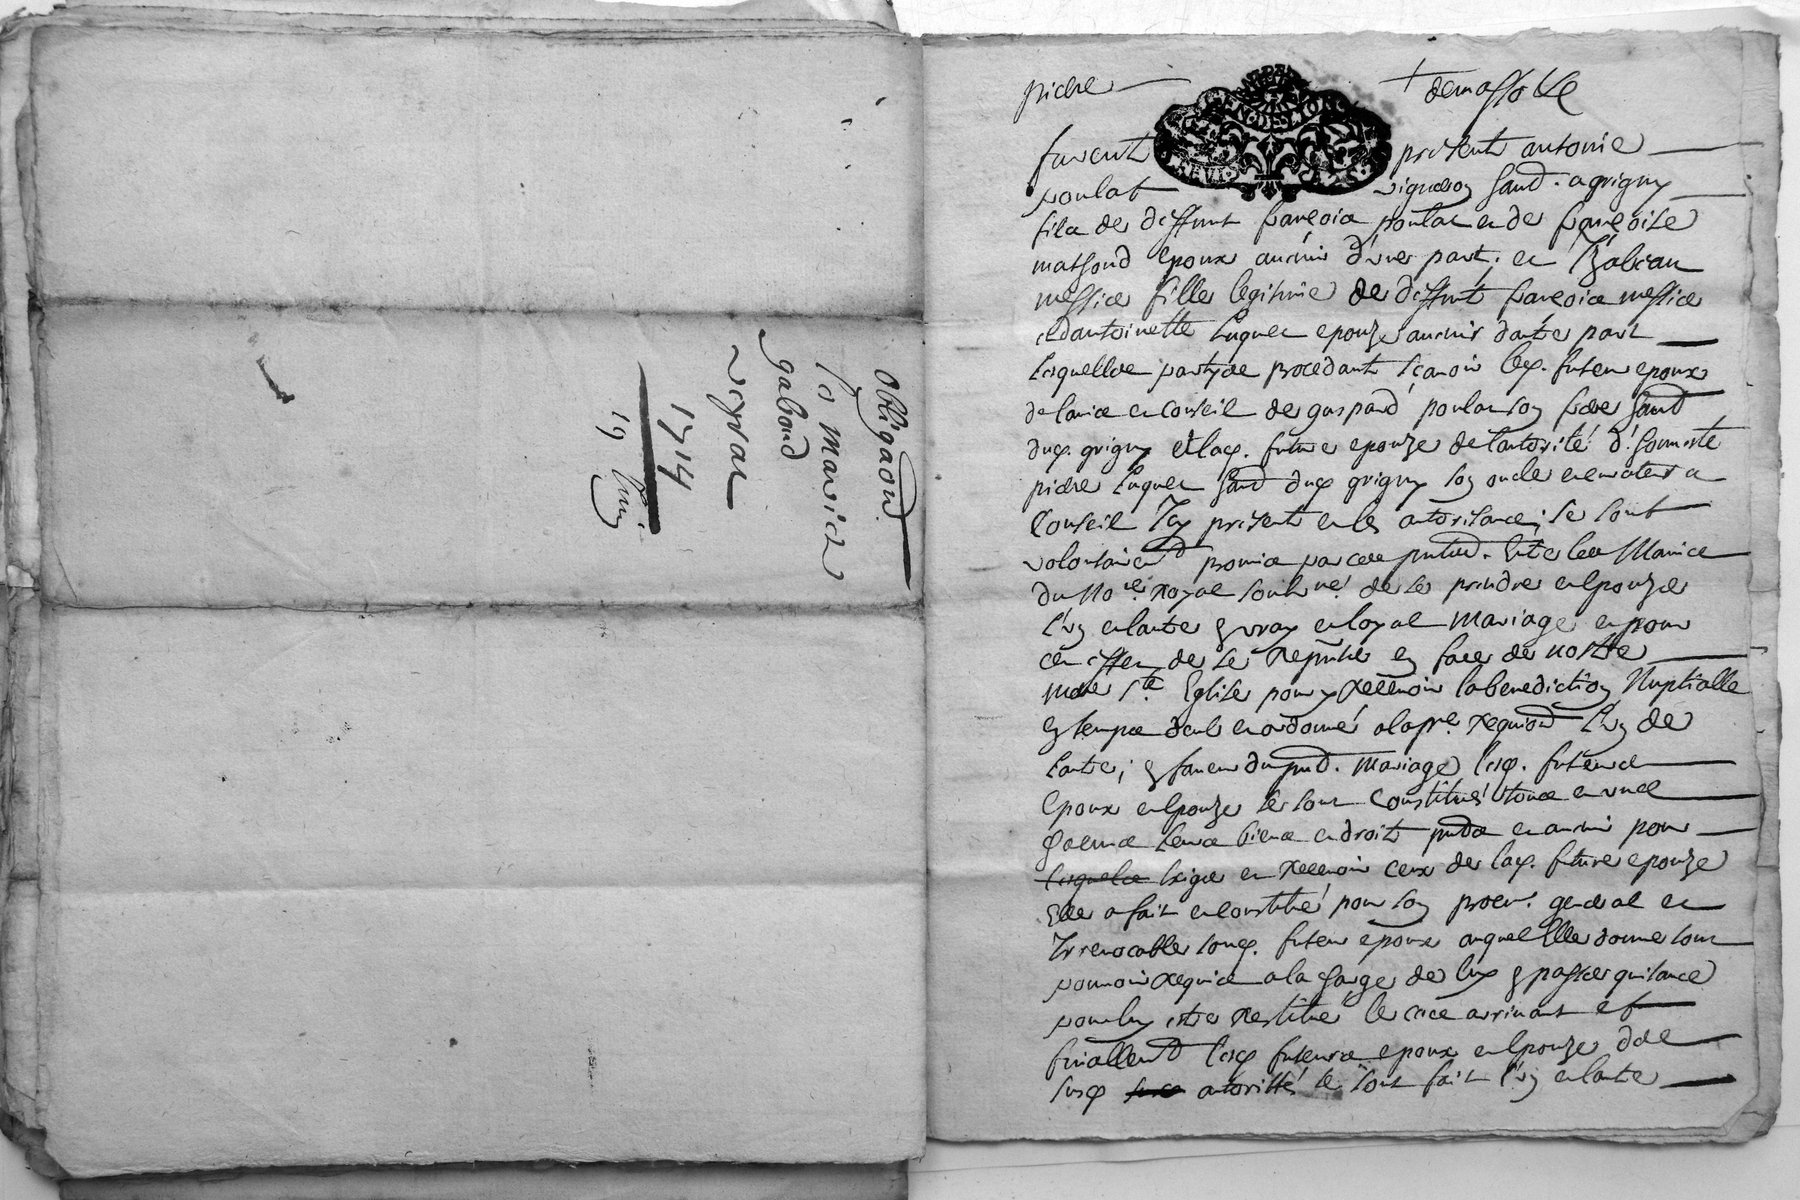 obligaõn
Sr marich
gaboud
veyrac
1714
19 Juin
piere
+ demassotte
furent presents antoine
poulat vigneron hand. a grigny
fils de deffunt françois poulat et de françoise
matfond epoux auenir d'une part. et Izabeau
messier fille legitime de deffunt françois messier
et dantoinette luquet epouze auenir dautre part
lesquelles partyes procedants sçauoir led. futeur epoux
de lauis et conseil de gaspard poulat son frere hand
dud. grigny et lad. future epouze de l'autorité d'honneste
piere luquet hand dud grigny son oncle et curateur a
conseil Icy present et les autorisance, se sont
volontairemt promis par ces pntes. entre les Mains
du No.re royal soub.né de se prendre en epouze
l'un et lautre en vray et loyal mariage et pour
cet effet de se reprnter en face de nostre
mere s.te Eglise pour y receuoir la benediction Nuptialle
en temps deub et ordonné a la pre. requison l'un de
lautre; en faueur dupnt. mariage lesd. futeurs
Epoux et epouze se sont constitués tous et uns
chacuns leurs biens et droits pnts et auenir pour
lesquels exiger et receuoir ceux de lad. future epouze
Elle a fait et constitué pour son procur. general et
Irreuocable sond. futeur epoux auquel elle donne tout
pouuoir requis a la charge de luy en passer quitance
pour luy estre restitué le cas arriuant et
finallemt lesd futeurs epoux et epouze de
susd autorittés se sont fait l'un et lautre